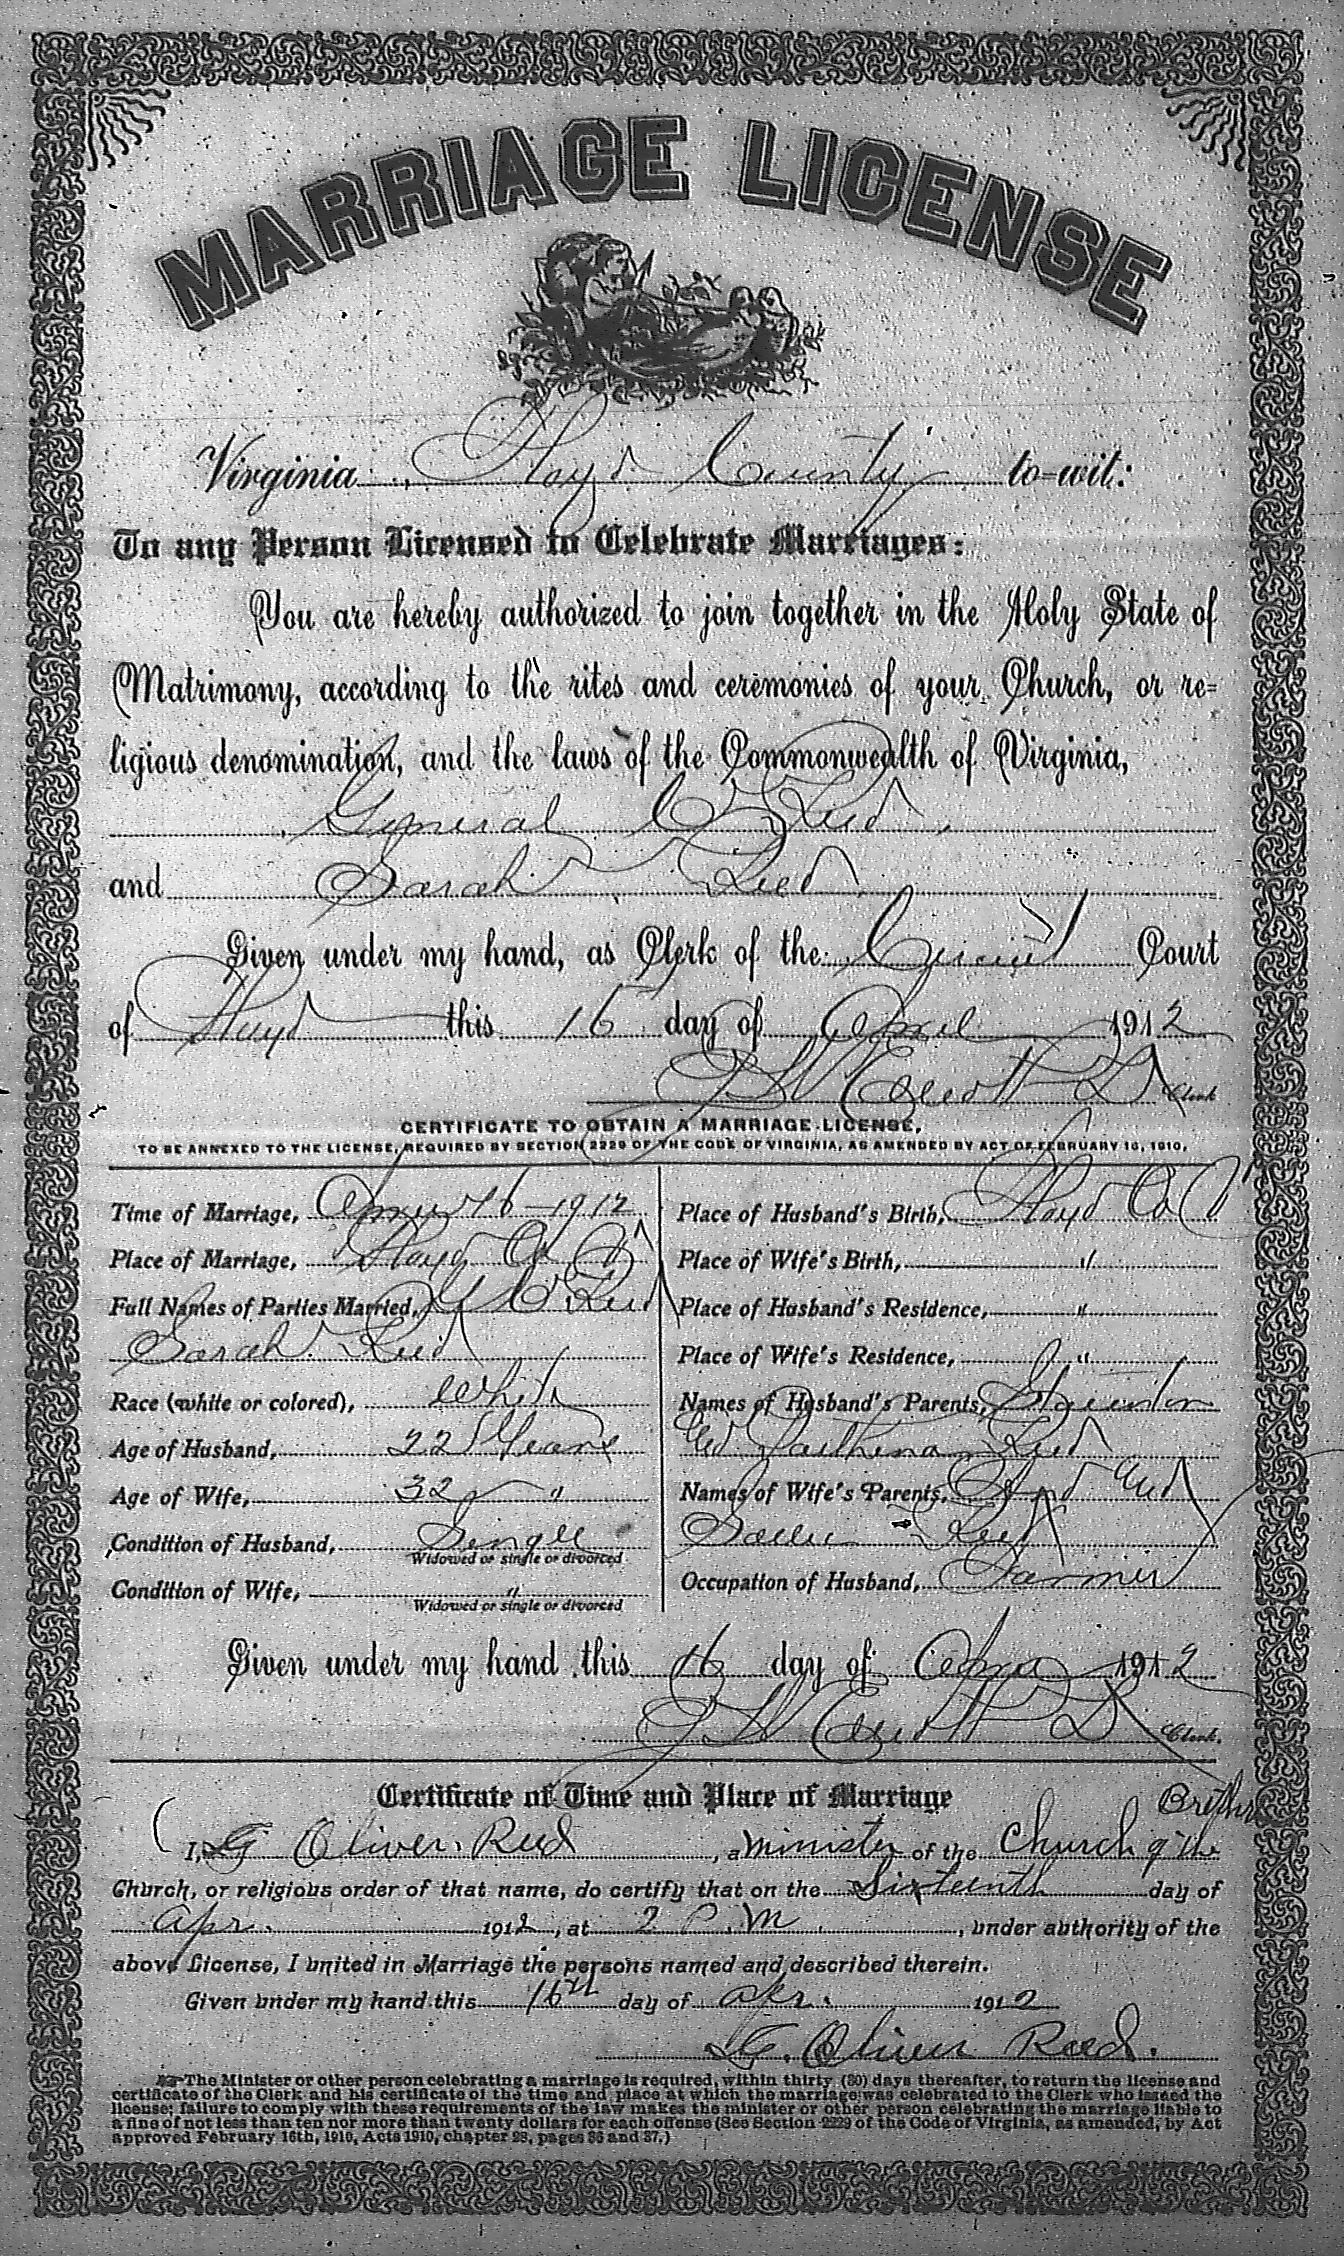 MARRIAGE LICENSE
Virginia, Floyd County to-wit:
To any Person Licensed to Celebrate Marriages:
You are hereby authorized to join together in the Holy State of
Matrimony, according to the rites and ceremonies of your Church, or re-
ligious denomination, and the laws of the Commonwealth of Virginia,
General C Reed
and Sarah Reed
Given under my hand, as Clerk of the Circuit Court
of Floyd this 16 day of April 1912
Clerk
CERTIFICATE TO OBTAIN A MARRIAGE LICENSE,
TO BE ANNEXED TO THE LICENSE, REQUIRED BY SECTION 2229 OF THE CODE OF VIRGINIA, AS AMENDED BY ACT OF FEBRUARY 16, 1910.
Time of Marriage, April 16-1912
Place of Marriage, Floyd Co Va
Full Names of Parties Married, G C Reed
Sarah Reed
Race (white or colored), White
Age of Husband, 22 Years
Age of Wife, 32 "
Condition of Husband, Single
Widowed or single or divorced
Condition of Wife, "
Widowed or single or divorced
Place of Husband's Birth, Floyd Co V
Place of Wife's Birth, "
Place of Husband's Residence, "
Place of Wife's Residence, "
Names of Husband's Parents,
Reed
Names of Wife's Parents,
Sallie Reed
Occupation of Husband, Farmer
Given under my hand this 16 day of Apr 1912
Clerk.
Certificate of Time and Place of Marriage
Brethr
I, G Oliver Reed, a Minister of the Church of the
Church, or religious order of that name, do certify that on the Sixteenth day of
Apr. 1912, at 2 P.M., under authority of the
above License, I united in Marriage the persons named and described therein.
Given under my hand this 16th day of Apr. 1912
G. Oliver Reed.
The Minister or other person celebrating a marriage is required, within thirty (30) days thereafter, to return the license and
certificate of the Clerk and his certificate of the time and place at which the marriage was celebrated to the Clerk who issued the
license; failure to comply with these requirements of the law makes the minister or other person celebrating the marriage liable to
a fine of not less than ten nor more than twenty dollars for each offense (See Section 2229 of the Code of Virginia, as amended, by Act
approved February 16th, 1910, Acts 1910, chapter 28, pages 36 and 37.)